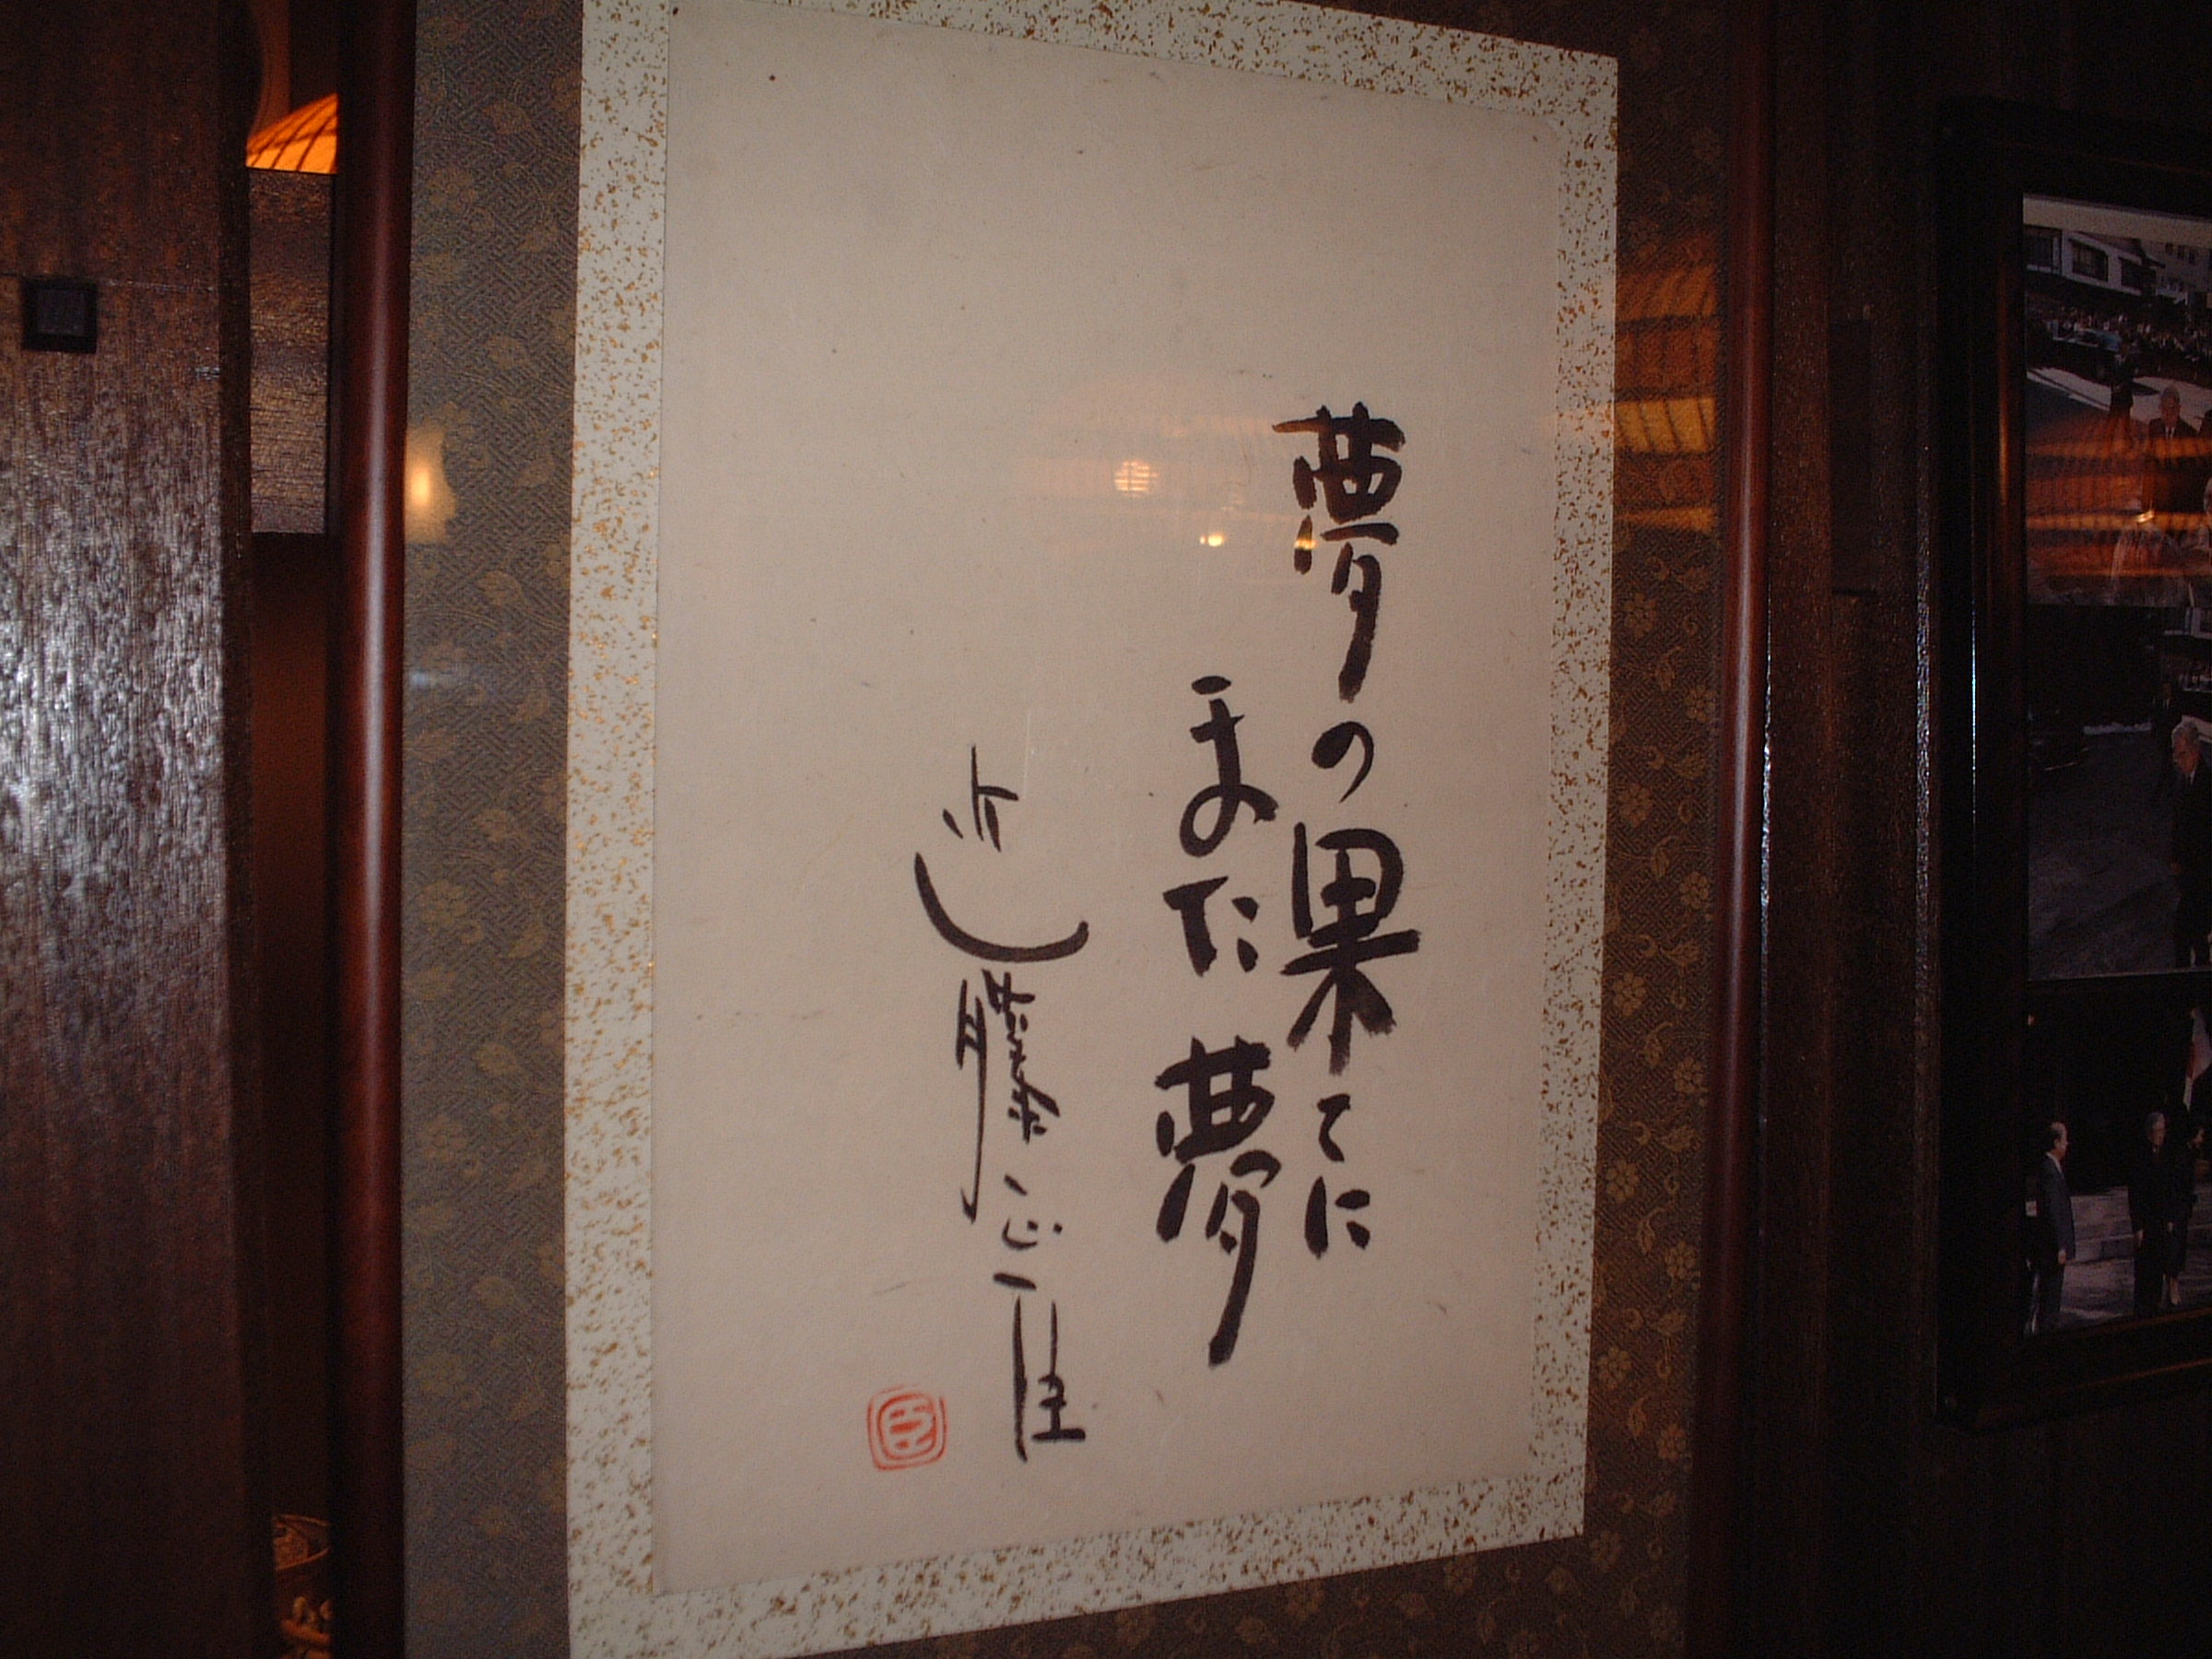 夢の果てに
また夢
近藤正臣